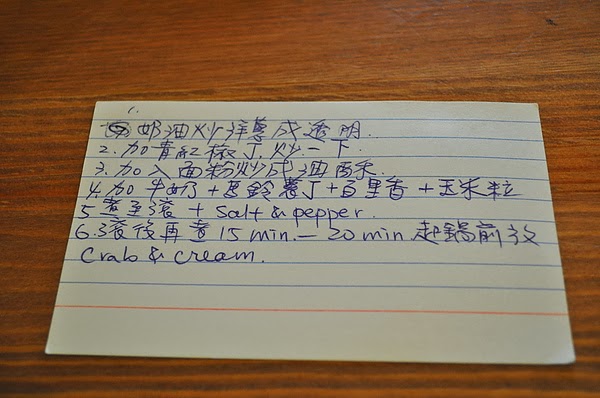 1.
奶油炒洋蔥成透明.
2.加青紅椒丁炒一下.
3.加入面粉炒成油酥.
4.加牛奶+馬鈴薯丁+百里香+玉米粒
5煮至滾+salt & pepper.
6.滾後再煮15 min.—20 min 起鍋前放
Crab & cream.